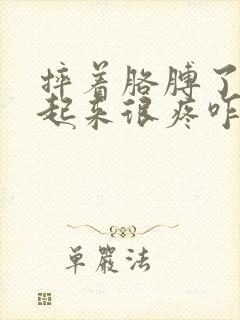 摔着胳膊了
起来很疼咋
单严法